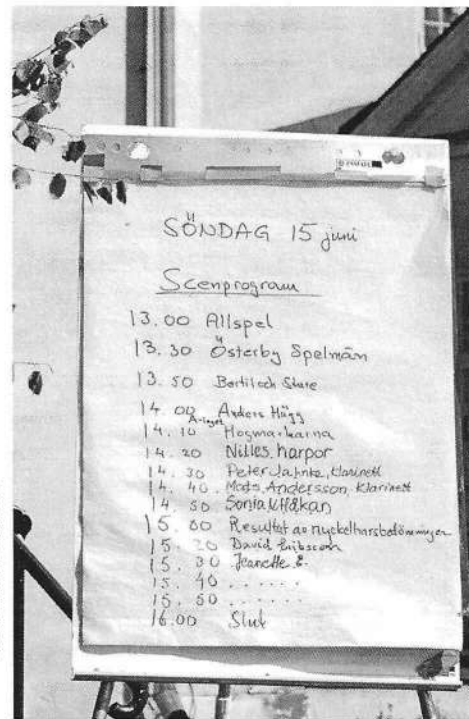 SÖNDAG 15 juni
Scenprogram
13.00 Allspel
13.30 Österby Spelmän
13.50 Bertil och Sture
14.00 Anders Hägg
14.10 Hogmarkarna
14.20 Nilles harpor
14.30 Peter Jahnke, Klarinett
14.40. Mats Andersson, Klarinett
14.50 Sonia & Håkan
15.00 Resultat av
15.20 David
15.30 Jeanette E.
15.40 ......
15.50 ......
16.00 Slut